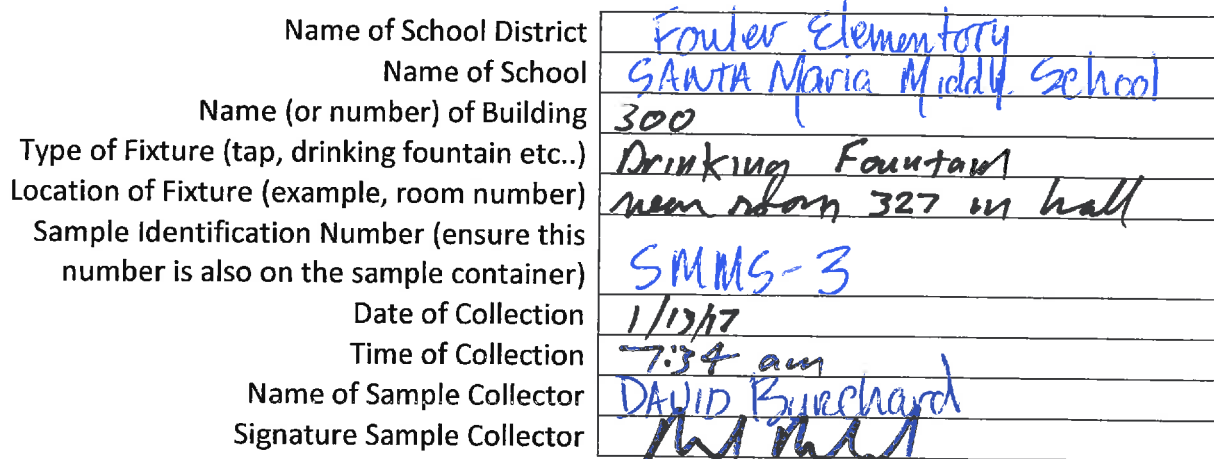 Name of School District Fowler Elementory
Name of School SANTA Maria Middle School
Name (or number) of Building 300
Type of Fixture (tap, drinking fountain etc..) Drinking Fountain
Location of Fixture (example, room number) near room 327 in hall
Sample Identification Number (ensure this
number is also on the sample container) SMMS-3
Date of Collection 1/13/17
Time of Collection 7:34 am
Name of Sample Collector DAVID Burchard
Signature Sample Collector